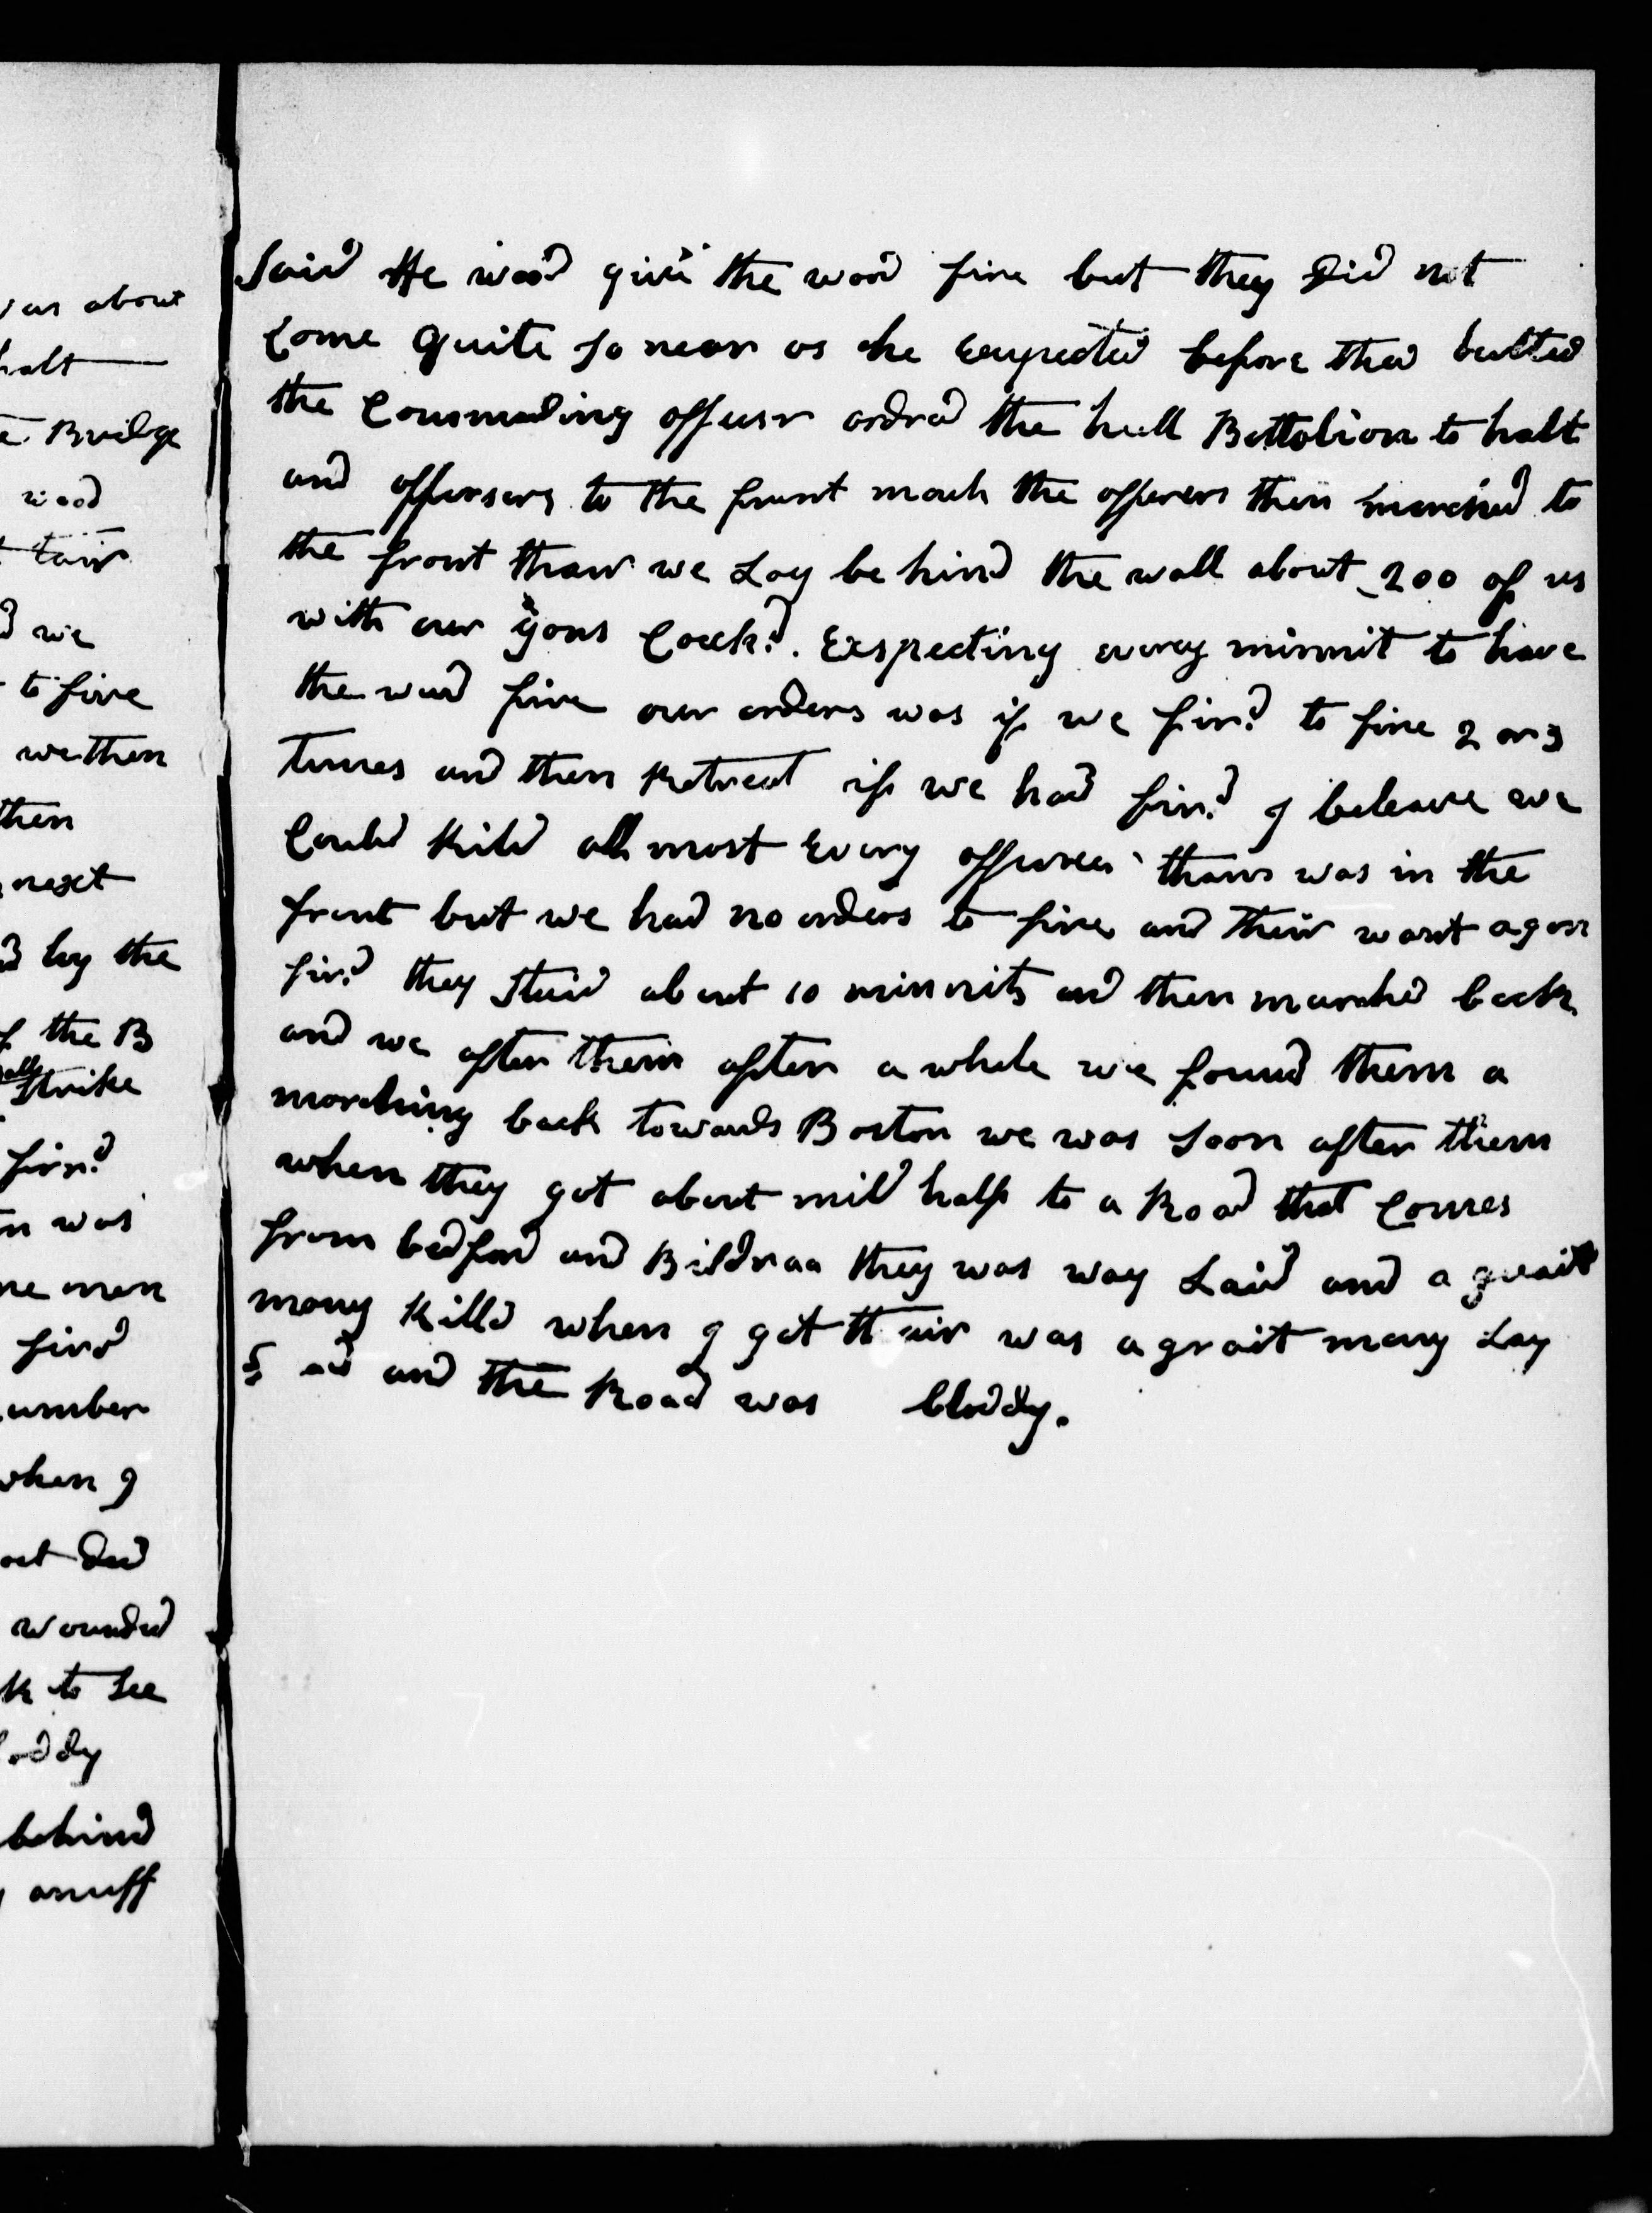 was about
halt
Bridge
wood
tair
we
to fire
we then
then
next
by the
the B
all
Strike
fird
was
men
fird
number
when I
ded
wounded
to See
behind
anuff
Said He wood give the word fire but they Did not
Come Quite so near as he Expected before they halted
the Commading offuser ordred the hull Battolion to halt
and offursers to the frunt march the offurers then marched to
the front thair we Lay be hind the wall about 200 of us
with our gons Cock.d Exspecting every minnit to have
the word fire our orders was if we fir.d to fire 2 or 3
times and then Retreat if we had fir.d I beleave we
Could Kild all most Every offurcer thair was in the
front but we had no orders to fire and their wont a gon
fir.d they Staid about 10 minnits and then marched back
and we after them after a while we found them a
marching back towards Boston we was Soon after them
when they got about mild half to a Road that Comes
from bedford and Bildraa they was way Laid and a grait
many Killd when I got thair was a grait many Lay
and the Road was bloddy.